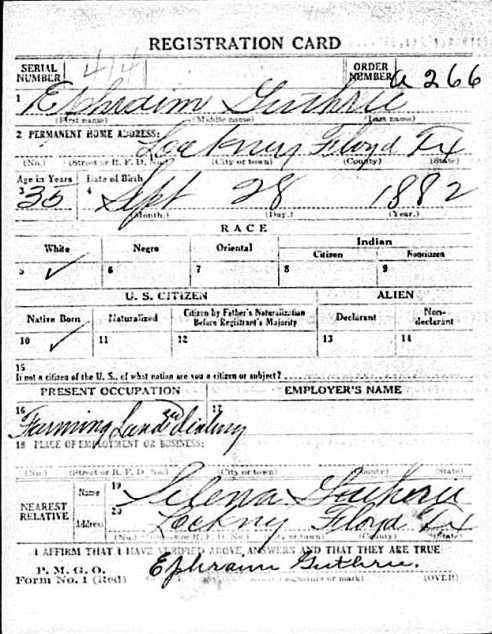 REGISTRATION CARD
SERIAL NUMBER 414 ORDER NUMBER a 266
1 Ephraim Guthrie
(First name) (Middle name) (Last name)
2 PERMANENT HOME ADDRESS:
Lockney Floyd Tx
(No.) (Street or R. F. D. No.) (City or town) (County) (State)
Age in Years Date of Birth
3 35 4 Sept 28 1882
(Month.) (Day.) (Year.)
RACE
White Negro Oriental Indian
Citizen Noncitizen
5 ✓ 6 7 8 9
U. S. CITIZEN ALIEN
Native Born Naturalized Citizen by Father's Naturalization Before Registrant's Majority Declarant Non-declarant
10 ✓ 11 12 13 14
15
If not a citizen of the U. S., of what nation are you a citizen or subject?
PRESENT OCCUPATION EMPLOYER'S NAME
16 17
Farming Land
18 PLACE OF EMPLOYMENT OR BUSINESS:
(No.) (Street or R. F. D. No.) (City or town) (County) (State)
NEAREST RELATIVE Name 19 Selena Guthrie
Address 20 Lockney Floyd Tx
(No.) (Street or R. F. D. No.) (City or town) (County) (State)
I AFFIRM THAT I HAVE VERIFIED ABOVE ANSWERS AND THAT THEY ARE TRUE
P. M. G. O.
Form No. 1 (Red) Ephraim Guthrie.
(Registrant's signature or mark) (OVER)